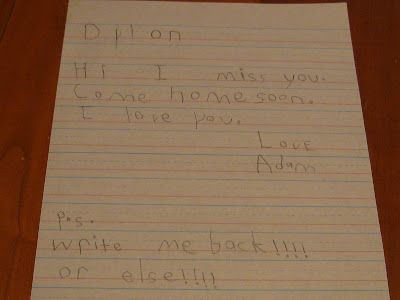 Dillon
Hi I miss you.
Come home soon.
I love you.
Love
Adam
p.s.
write me back!!!!
or else!!!!